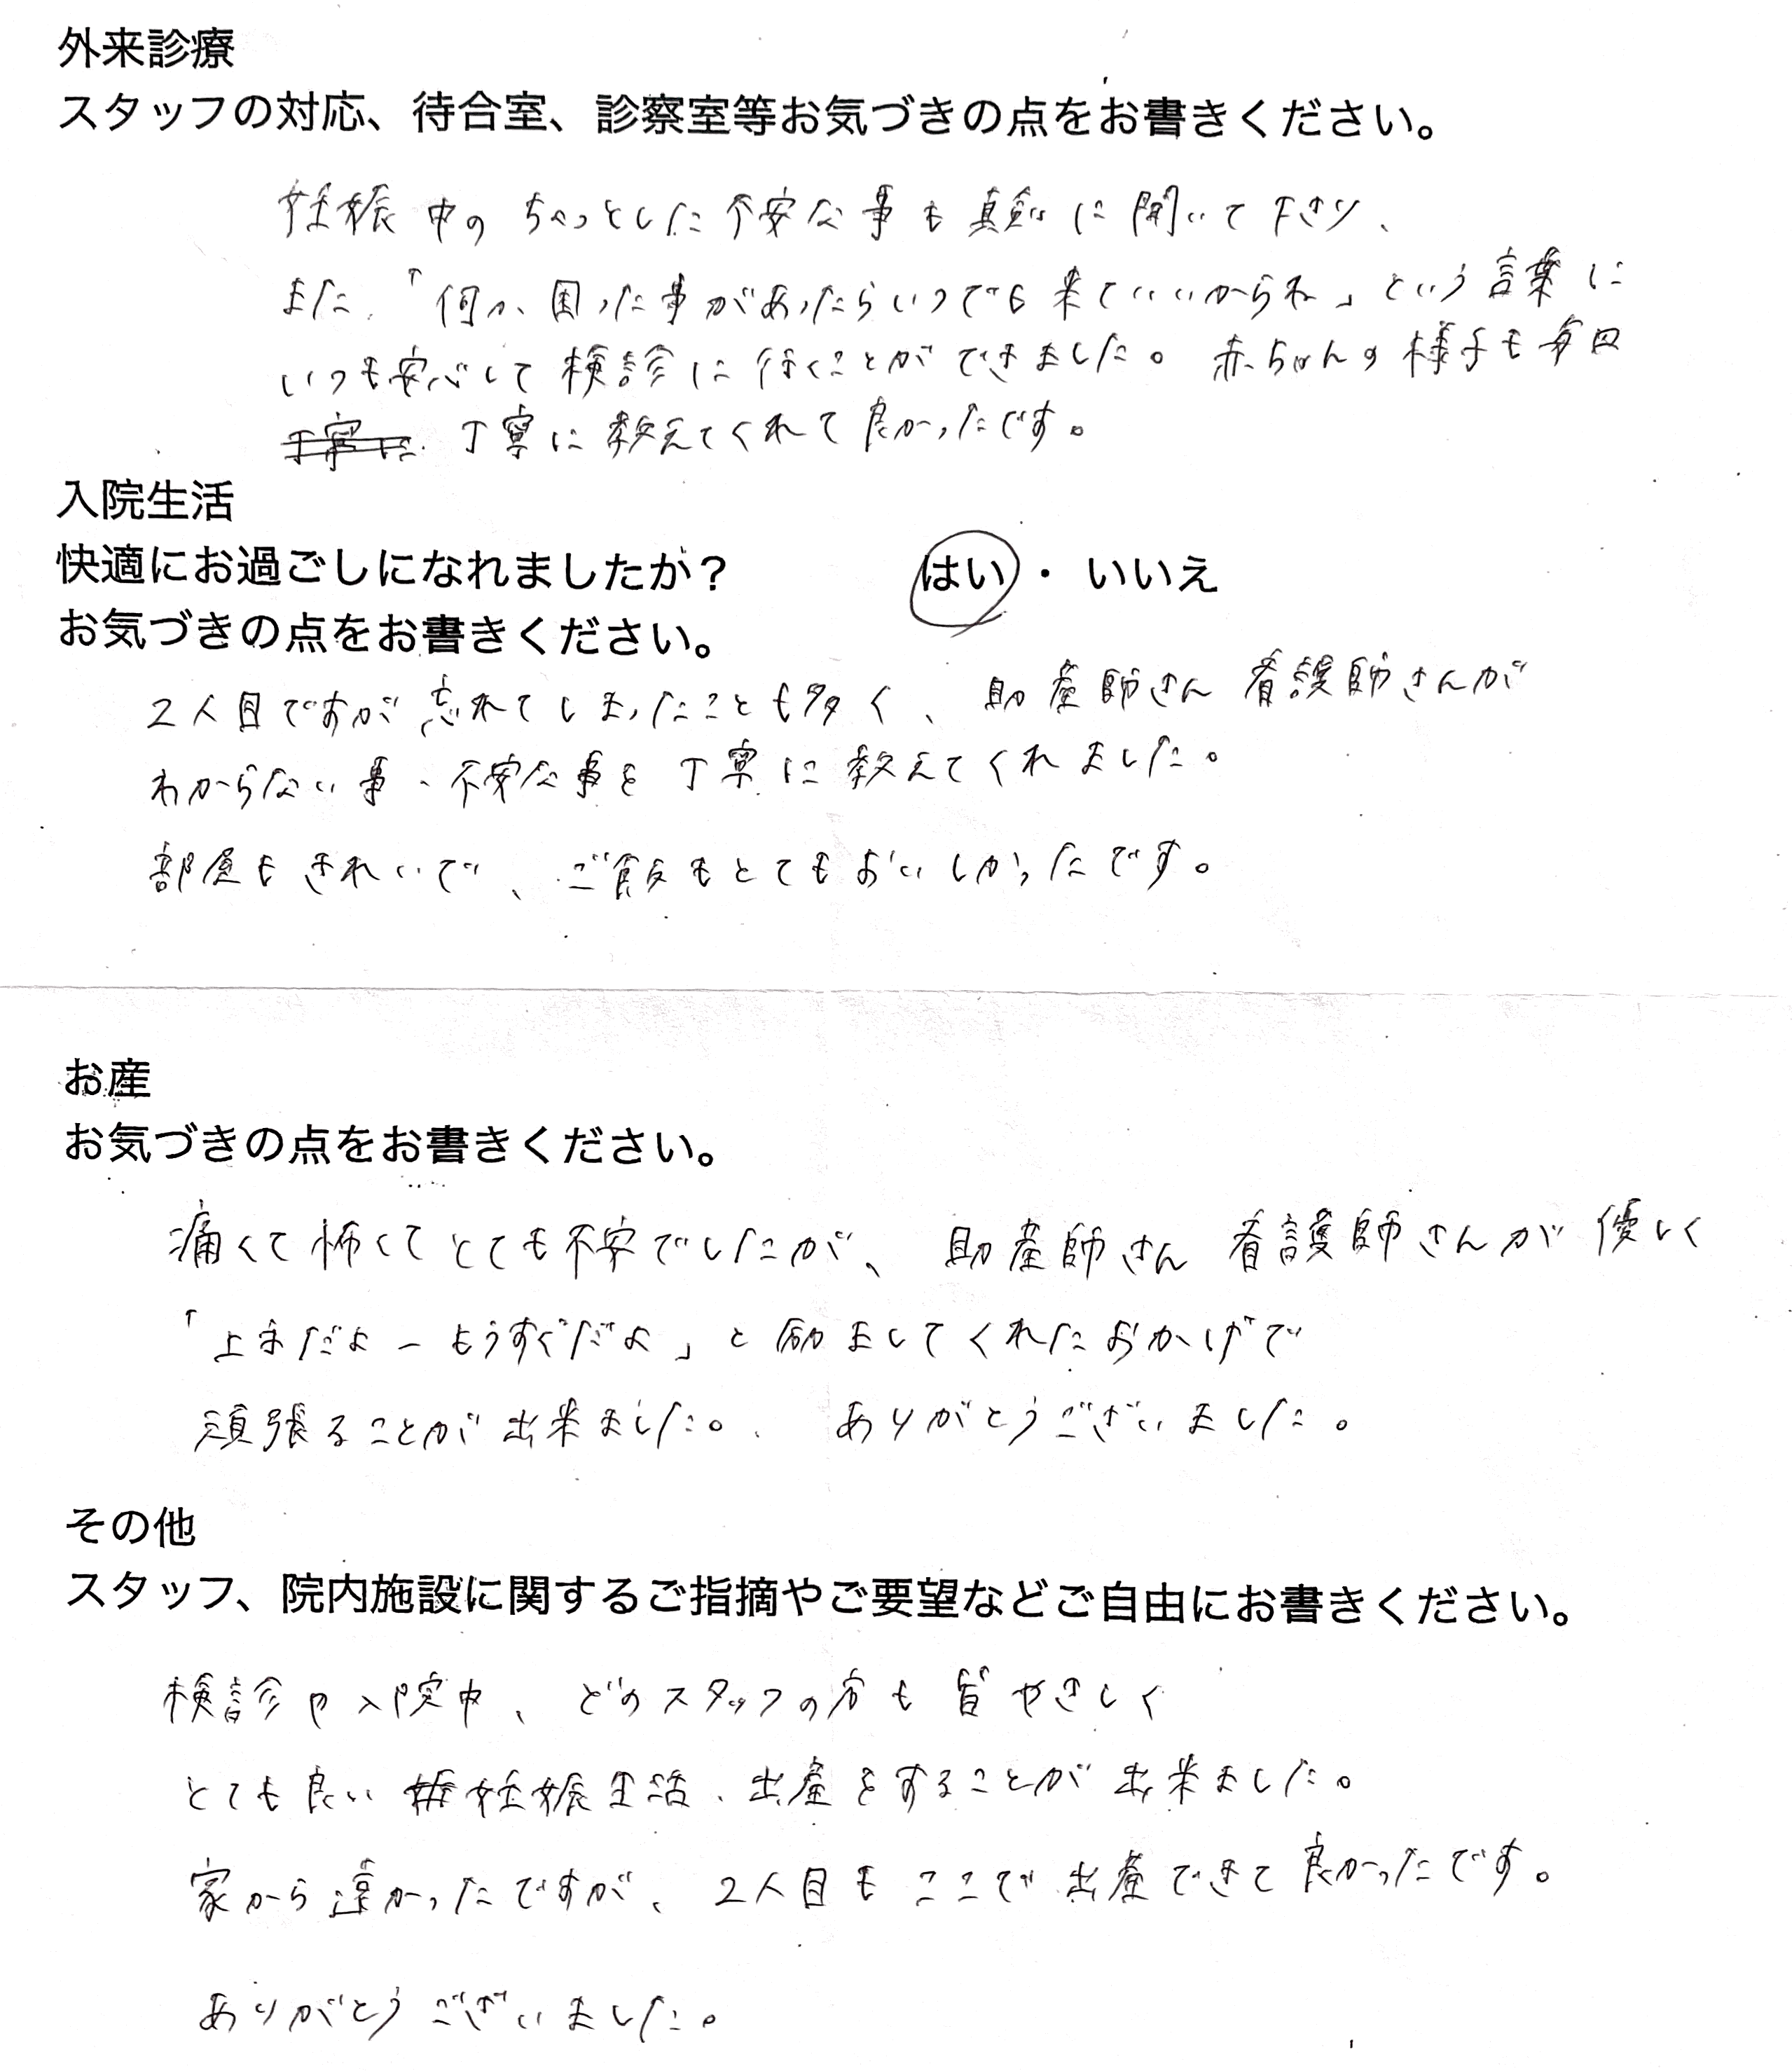 外来診療
スタッフの対応、待合室、診察室等お気づきの点をお書きください。
妊娠中の ちょっとした不安な事も真剣に聞いて下さり、
また、「何か、困った事があったらいつでも来ていいからね」という言葉に
いつも安心して検診に行くことができました。赤ちゃんの様子も毎回
丁寧に 丁寧に教えてくれて良かったです。
入院生活
快適にお過ごしになれましたか? はい ・ いいえ
お気づきの点をお書きください。
2人目ですが忘れてしまったことも多く、助産師さん 看護師さんが
わからない事、不安な事を丁寧に教えてくれました。
部屋もきれいで、ご飯もとてもおいしかったです。
お産
お気づきの点をお書きください。
痛くて怖くてとても不安でしたが、助産師さん 看護師さんが優しく
「上手だよ―もうすぐだよ」と励ましてくれたおかげで
頑張ることが出来ました。ありがとうございました。
その他
スタッフ、院内施設に関するご指摘やご要望などご自由にお書きください。
検診や入院中、どのスタッフの方も皆やさしく
とても良い 妊娠生活、出産をすることが出来ました。
家から遠かったですが、2人目もここで出産できて良かったです。
ありがとうございました。